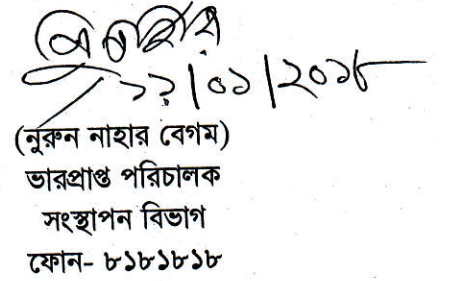 ২২/০১/২০১৮
(নুরুন নাহার বেগম)
ভারপ্রাপ্ত পরিচালক
সংস্থাপন বিভাগ
ফোন- ৮১৮১৮১৮